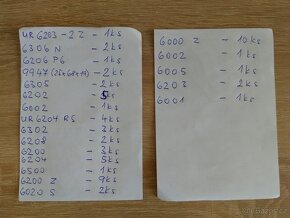 UR 6203 - 2 Z - 1ks
6306 N - 2ks
6206 P6 - 1ks
9947 (25x68x18) - 2ks
6305 - 2ks
6202 - 5ks
6002 - 1ks
UR 6204 RS - 4ks
6302 - 3ks
6208 - 2ks
6200 - 3ks
6204 - 5ks
6500 - 1ks
6200 Z - 9ks
6020 S - 2ks
6000 Z - 10ks
6002 - 1ks
6005 - 1ks
6203 - 2ks
6001 - 1ks